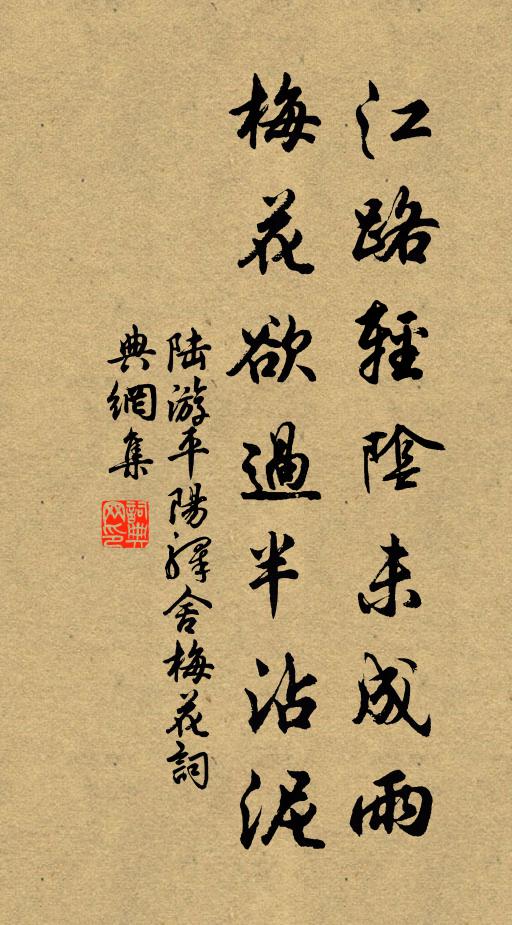 江路輕陰未成雨
梅花欲過半沾泥
陆游平陽驛舍梅花詞
典網集
詞典网印